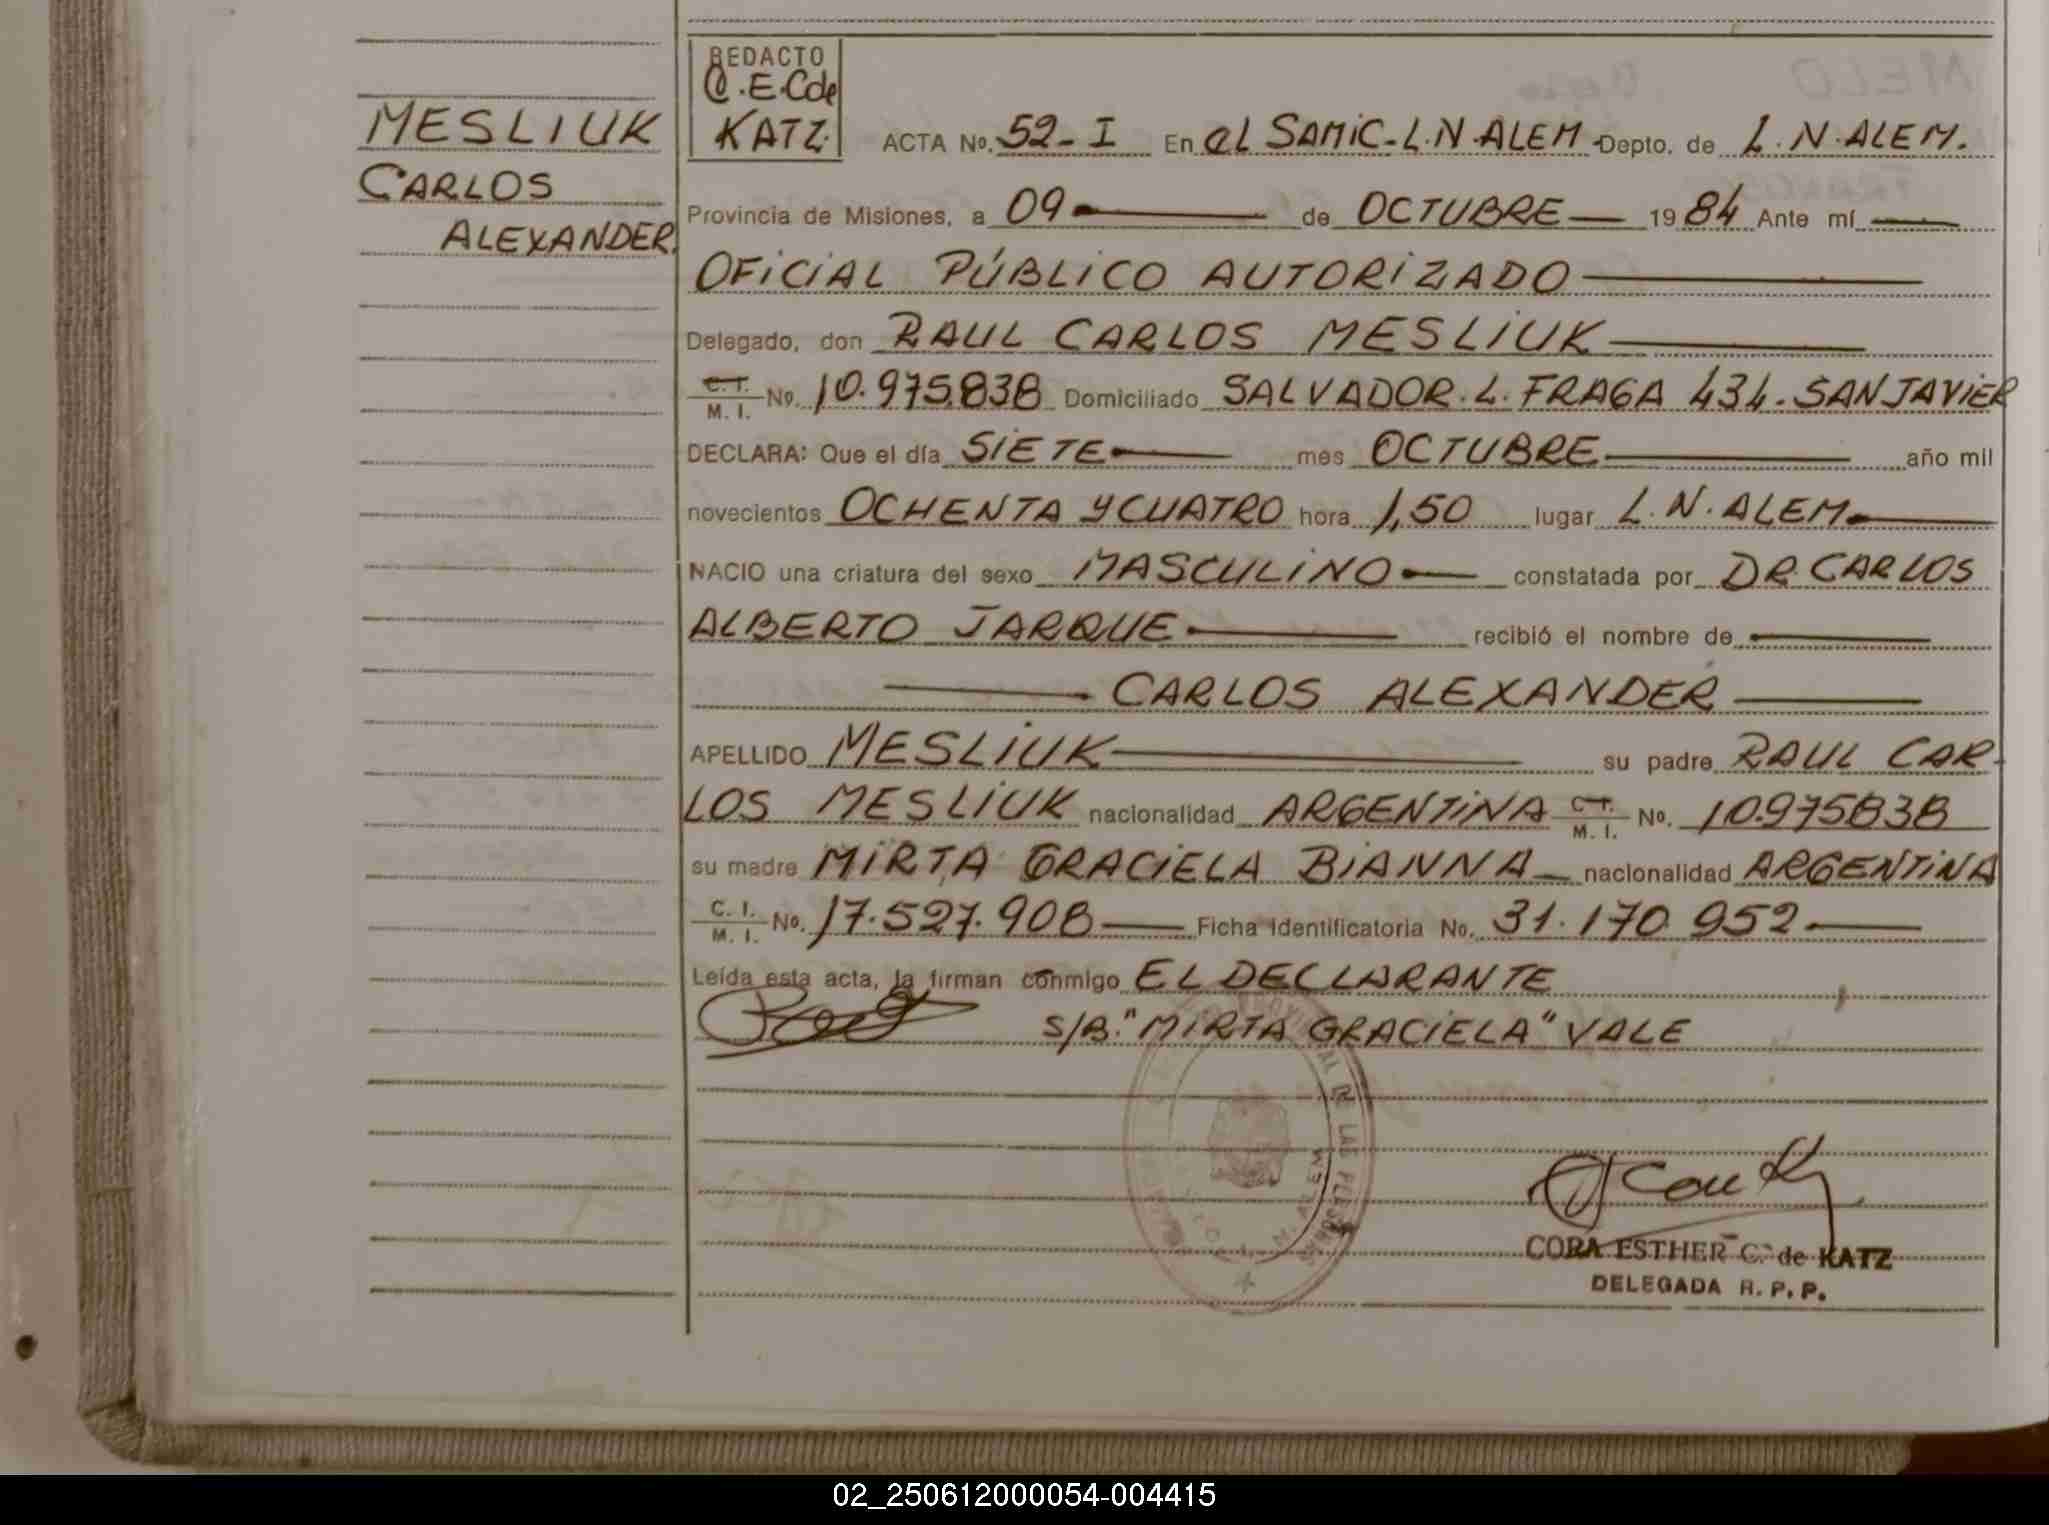 REDACTO
C.E.C de
KATZ.
MESLIUK
CARLOS
ALEXANDER.
ACTA No. 52-I En el SAMIC-L.N.ALEM Depto. de L.N.ALEM.
Provincia de Misiones, a 09 de OCTUBRE 1984 Ante mí
OFICIAL PÚBLICO AUTORIZADO
Delegado, don RAUL CARLOS MESLIUK
C. I. M. I. No. 10.975.838 Domiciliado SALVADOR.L.FRAGA 434.SAN JAVIER
DECLARA: Que el día SIETE mes OCTUBRE año mil
novecientos OCHENTA Y CUATRO hora 1,50 lugar L.N.ALEM
NACIO una criatura del sexo MASCULINO constatada por DR.CARLOS
ALBERTO JARQUE recibió el nombre de
CARLOS ALEXANDER
APELLIDO MESLIUK su padre RAUL CAR-
LOS MESLIUK nacionalidad ARGENTINA C. I. M. I. No. 10.975838
su madre MIRTA GRACIELA BIANNA nacionalidad ARGENTINA
C. I. M. I. No. 17.527.908 Ficha Identificatoria No. 31.170.952
Leída esta acta, la firman conmigo EL DECLARANTE
S/B."MIRTA GRACIELA" VALE
PROVINCIAL DE LAS PERSONAS
N. ALEM
CORA ESTHER C. de KATZ
DELEGADA R. P. P.
02_250612000054-004415